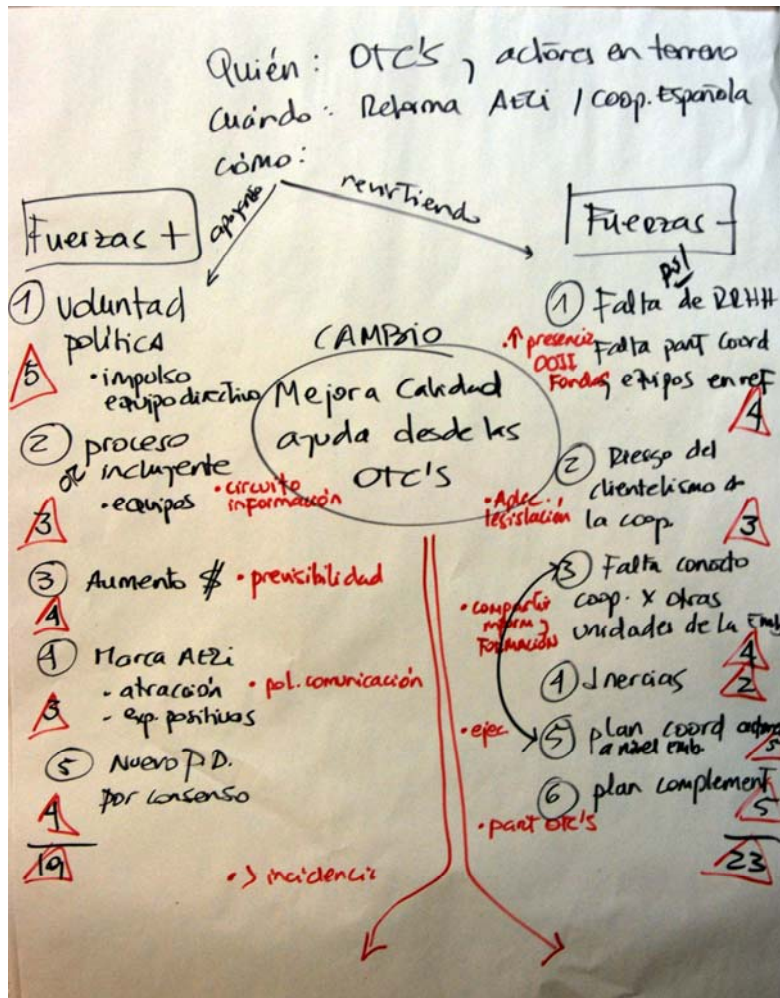 Quién: OTC'S, actores en terreno
Cuándo: Reforma AECi / Coop. Española
Cómo:
apoyando
revirtiendo
Fuerzas +
1 Voluntad
política
5
• impulso
equipo directivo
2 proceso
incluyente
• equipos
• circuito
información
3
3 Aumento $ • previsibilidad
4
4 Marca AECi
- atracción • pol. comunicación
- exp. positivas
3
5 Nuevo P.D.
por consenso
4
19
• > incidencia
CAMBIO
Mejora Calidad
ayuda desde las
OTC'S
Fuerzas -
1 Falta de RRHH
• ↑ presencia
OOII
Fondos
Falta part coord
equipos en ref
4
2 Riesgo del
clientelismo de
la coop.
• Adec.
legislación
3
3 Falta conocto
coop. x otras
unidades de la Emb
• compartir
inform y
Formación
4
4 Inercias
2
• ejec.
5 plan coord
a nivel emb.
5
6 plan complement
5
• part OTC'S
23